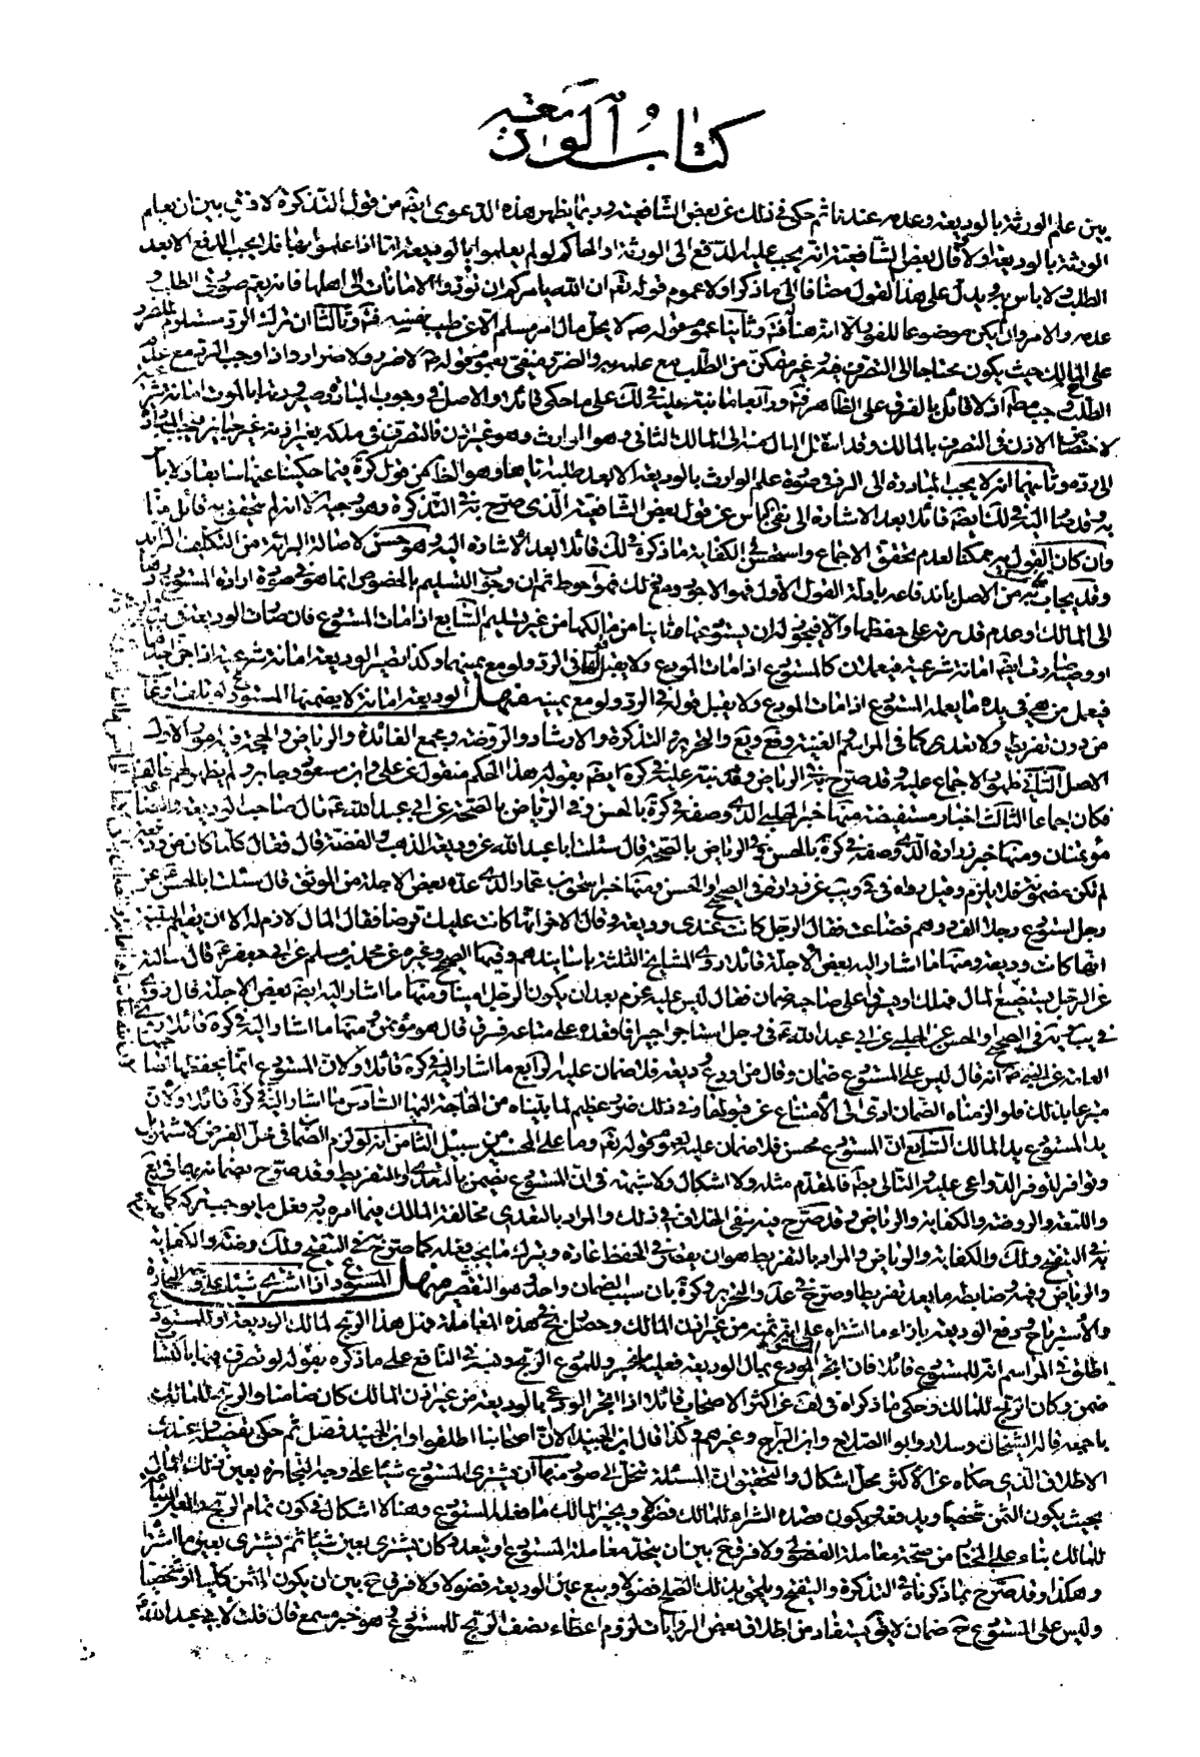 كتاب الوديعة
بين علم الورثة بالوديعة وعدمه عندنا ثم حكى في ذلك عن بعض الشافعية وربما يظهر هذه الدعوى ايضا من قول التذكرة لا فرق بين ان يعلم
الورثة بالوديعة او لا وقال بعض الشافعية انه يجب عليه الدفع الى الورثة او الحاكم لو لم يعلموا بالوديعة اما اذا علموا بها فلا يجب الدفع الا بعد
الطلب ولا باس به ويدل على هذا القول مضافا الى ما ذكر اولا عموم قوله تع ان الله يامركم ان تؤدوا الامانات الى اهلها فانه يعم صورتي الطلب و
عدمه والامر وان لم يكن موضوعا للفور الا انه هنا وثانيا عموم قوله ص لا يحل مال امرء مسلم الا عن طيب نفسه وثالثا ان ترك الرد مستلزم للضرر
على المالك حيث يكون محتاجا الى التصرف فيه وغير متمكن من الطلب مع علمه به والضرر منفي بعموم قوله ص لا ضرر ولا ضرار واذا وجب الرد مع
الطلب وجب مطلقا اذ لا قائل بالفرق على الظاهر ورابعا ما نبه عليه في لك على ما حكى قائلا والاصل في وجوب المبادرة صيرورتها بالموت امانة شرعية
لاختصاص الاذن في التصرف بالمالك وقد انتقل المال منه الى المالك الثاني وهو الوارث وهو غير اذن فالتصرف في ملكه بغير اذنه غير جايز فيجب المبادرة
الى رده وثانيهما انه لا يجب المبادرة الى الرد في صورة علم الوارث بالوديعة الا بعد طلبه اياها وهو الظاهر من قول كرة فيما حكينا عنها سابقا ولا باس
به وقد صار اليه في لك ايضا قائلا بعد الاشارة الى نفي الباس عن قول بعض الشافعية الذي صرح به في التذكرة وهو وجيه الا انه لم يتحقق به قائل منا
وان كان القول به ممكنا لعدم تحقق الاجماع واستحسن في الكفاية ما ذكره في لك قائلا بعد الاشارة اليه وهو حسن لاصالة البرائة من التكليف الزايد
وقد يجاب عن الاصل باندفاعه بادلة القول الاول فهو الاجود ومع ذلك فهو احوط ثم ان وجوب التسليم بالخصوص انما هو في صورة ارادة المستودع رد
الى المالك او عدم قدرته على حفظها والا فيجوز له ان يستودعها من مالكها من غير تسليم السابع اذا مات المستودع فان صارت الوديعة في يد
او وصيا فهي ايضا امانة شرعية فيعملان كالمستودع اذا مات المودع ولا يقبل قولهما في الرد ولو مع يمينهما وكذا تصير الوديعة امانة شرعية اذا جن
فيعمل من هي في يده ما يعمله المستودع اذا مات المودع ولا يقبل قوله في الرد ولو مع يمينه منهل الوديعة امانة لا يضمنها المستودع لو تلفت او عابت
من دون تفريط ولا تعدي كما في المراسم الغنية وفع ويع والتحرير والتذكرة والارشاد والروضة ومجمع الفائدة والرياض والحجة فيه امور الاول
الاصل الثاني ظهور الاجماع عليه وقد صرح به في الرياض وقد نبه عليه في كرة ايضا بقوله هذا الحكم منقول عن علي وابن مسعود وجابر ولم يظهر لهم مخالف
فكان اجماعا الثالث اخبار مستفيضة منها خبر الحلبي الذي وصفه في كرة بالحسن وفي الرياض بالصحة عن ابي عبد الله ع قال صاحب الوديعة والبضاعة
مؤتمنان ومنها خبر زرارة الذي وصفه في كرة بالحسن وفي الرياض بالصحة قال سئلت ابا عبد الله عن وديعة الذهب والفضة قال فقال كلما كان من وديعة
لم تكن مضمونة فلا يلزم وقيل رواه في يب عن زرارة في الصحيح او الحسن ومنها خبر اسحق بن عمار الذي عده بعض الاجلة من الموثق قال سئلت ابا الحسن عن
رجل استودع رجلا الف درهم فضاعت فقال الرجل كانت عندي وديعة وقال الاخر انما كانت عليك قرضا فقال المال لازم له الا ان يقيم البينة
انها كانت وديعة ومنها ما اشار اليه بعض الاجلة قائلا روى المشايخ الثلثة باسانيدهم وفيها الصحيح وغيره عن محمد بن مسلم عن ابي جعفر ع قال سالته
عن الرجل يستبضع المال فيهلك او يسرق اعلى صاحبه ضمان فقال ليس عليه غرم بعد ان يكون الرجل امينا ومنها ما اشار اليه ايضا بعض الاجلة قال روى
في يب في الصحيح او الحسن عن الحلبي عن ابي عبد الله ع في رجل استاجر اجيرا فاقعده على متاعه فسرق قال هو مؤتمن ومنها ما اشار اليه في كرة قائلا
العامة عن النبي ص انه قال ليس على المستودع ضمان وقال من اودع وديعة فلا ضمان عليه الرابع ما اشار اليه في كرة قائلا ولان المستودع انما يحفظها لصاحبها
متبرعا بذلك فلو الزمناه الضمان ادى الى الامتناع عن قبولها وفي ذلك ضرر عظيم لما بيناه من الحاجة اليها السادس ما اشار اليه في كرة قائلا ولان
يد المستودع يد المالك السابع ان المستودع محسن فلا ضمان عليه لعموم قوله تع وما على المحسنين من سبيل الثامن انه لو لزم الضمان في محل الفرض لاشتهر بل
وتواتر لتوفر الدواعي عليه والتالي بط فالمقدم مثله ولا اشكال ولا شبهة في ان المستودع يضمن بالتعدي او التفريط وقد صرح بضمانه بهما في يع
واللمعة والروضة والكفاية والرياض وقد صرح فيه بنفي الخلاف في ذلك والمراد بالتعدي مخالفة المالك فيما امره به وفعل ما يوجب تركه كما صرح
به في التنقيح ولك والكفاية والرياض والمراد بالتفريط هو ان يقصر في الحفظ عادة ويترك ما يجب فعله كما صرح به في التنقيح ولك وضه والكفاية
والرياض وفيه ضابطه ما يعد تفريطا وصرح في عد والتحرير وكرة بان سبب الضمان واحد هو التقصير منهل المستودع اذا اشترى شيئا على وجه التجارة
والاسترباح ودفع الوديعة بازاء ما اشتراه على انه ثمنه من غير اذن المالك وحصل ربح بهذه المعاملة فهل هذا الربح لمالك الوديعة او للمستودع
اطلق في المراسم انه للمستودع قائلا فان اتجر المودع بمال الوديعة فعليه ما خسر وللمودع الربح وفيه في النافع على ما ذكره بقوله لو تصرف فيها باكتساب
ضمن وكان الربح للمالك وحكى ما ذكراه في لف عن اكثر الاصحاب قائلا اذا اتجر الودعي بالوديعة من غير اذن المالك كان ضامنا والربح للمالك
باجمعه قاله الشيخان وسلار وابو الصلاح وابن البراج وغيرهم وكذا قال ابن الجنيد الا ان اصحابنا اطلقوا وابن الجنيد فصل ثم حكى تفصيله عندي
الاطلاق الذي حكاه عن الاكثر محل اشكال والتحقيق ان المسئلة تنحل الى صور منها ان يشتري المستودع شيئا على وجه التجارة بعين ذلك المال
بحيث يكون الثمن شخصيا ويدفعه ويكون قصده الشراء للمالك فضولا ويجيز المالك ما فعله المستودع وهنا لا اشكال في كون تمام الربح
للمالك بناء على المختار من صحة معاملة الفضولي ولا فرق ح بين ان يتحد معاملة المستودع او يتعدد كان يشتري بعين شيئا ثم يشتري بعين ما اشتراه
وهكذا وقد صرح بما ذكرناه في التذكرة والتنقيح ويلحق بذلك الصلح فضولا وبيع عين الوديعة فضولا ولا فرق ح بين ان يكون المثمن كليا او شخصيا
وليس على المستودع ح ضمان لا يق يستفاد من اطلاق بعض الروايات لزوم اعطاء نصف الربح للمستودع وهو خبر مسمع قال قلت لابي عبد الله ع